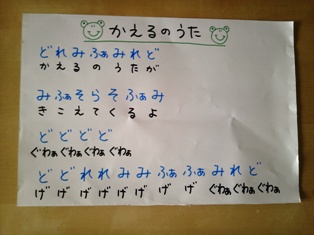 かえるのうた
どれみふぁみれど
かえるのうたが
みふぁそらそふぁみ
きこえてくるよ
どどどど
ぐわぁぐわぁぐわぁぐわぁ
どどれれみみふぁふぁみれど
げげげげげげげげぐわぁぐわぁぐわぁ